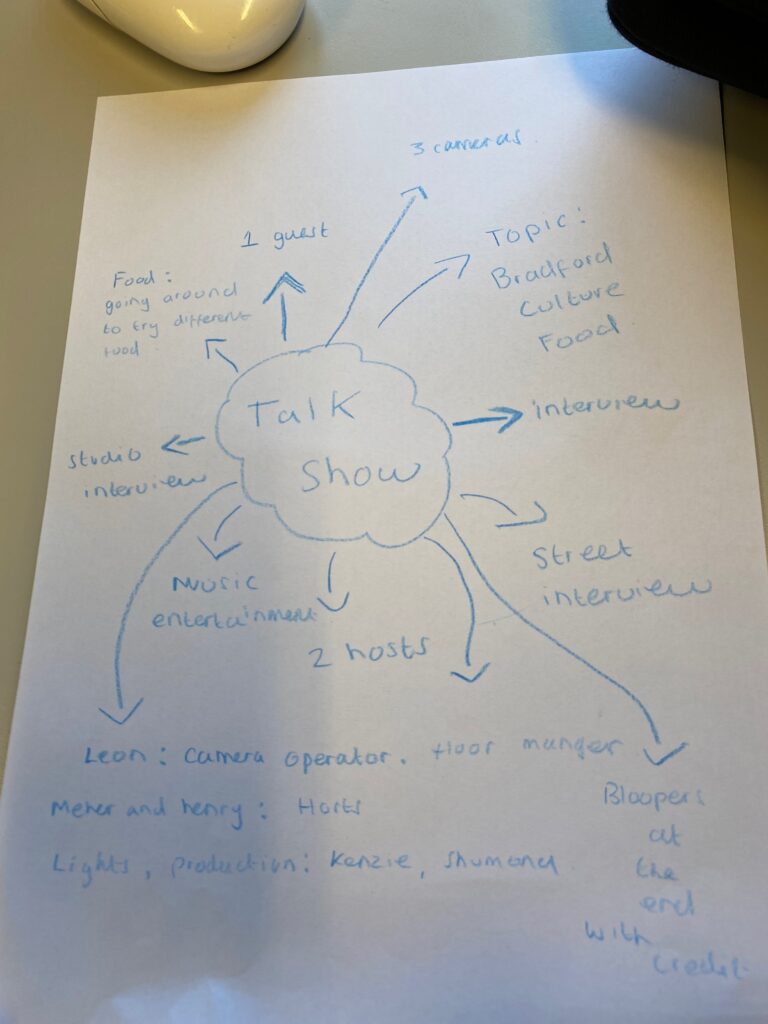 3 cameras.
1 guest
Topic:
Bradford
Culture
Food
Food:
going around
to try different
food
Talk
Show
interview
studio
interview
Street
interview
Music
entertainment
2 hosts
Leon: Camera operator. floor manger
Meher and henry: Hosts
Lights, production: Kenzie, Shumana
Bloopers
at
the
end
with
credit